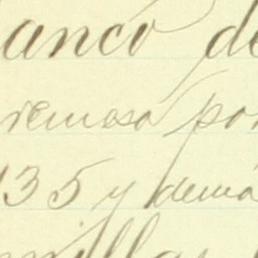 anco de
remosa por
135 y demá
millas